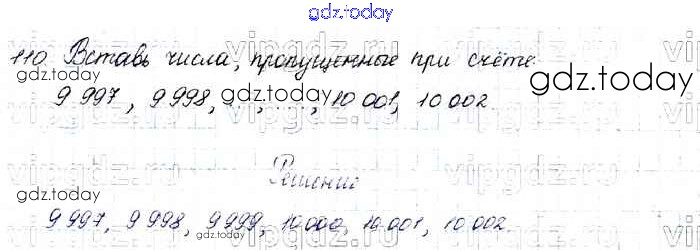 gdz.today
110. Вставь числа, пропущенные при счёте.
gdz.today
9 997, 9 998, ..., ..., 10 001, 10 002.
gdz.today
vipgdz.ru
Решение
gdz.today
9 997, 9 998, 9 999, 10 000, 10 001, 10 002.
gdz.today